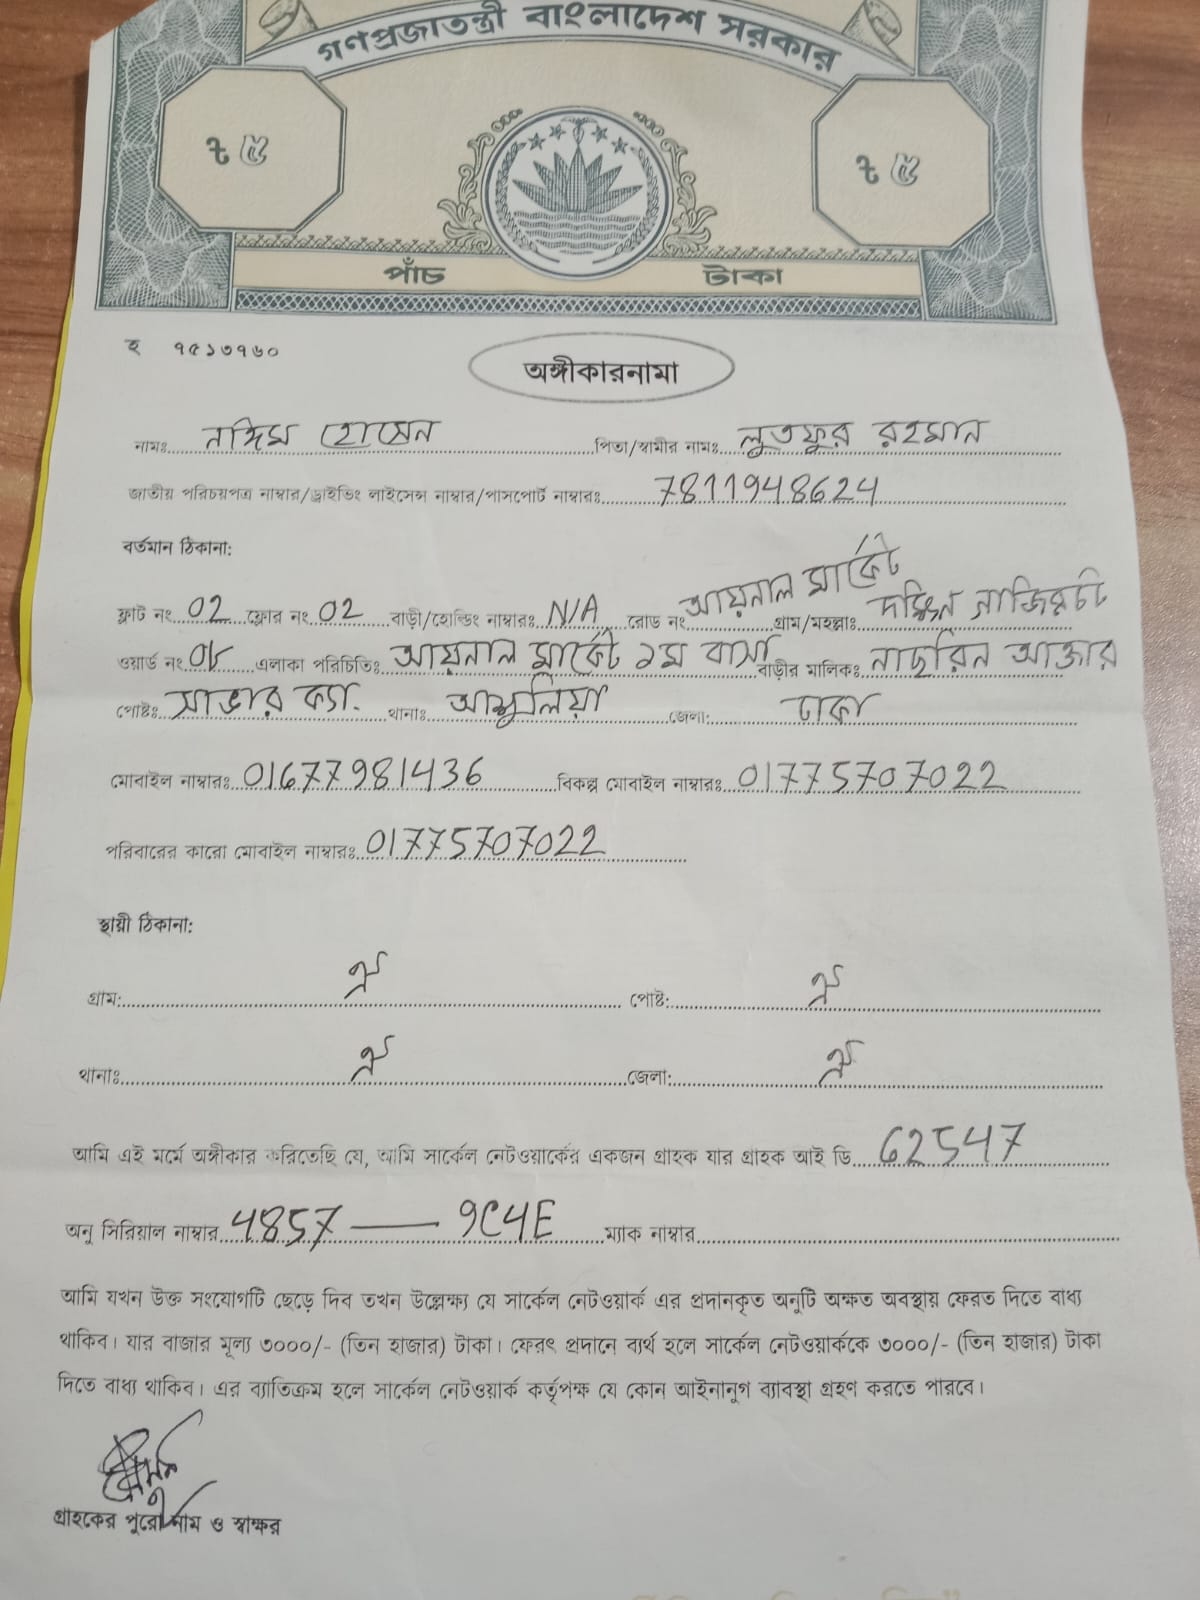 গণপ্রজাতন্ত্রী বাংলাদেশ সরকার
৳ ৫ ৳ ৫
পাঁচ টাকা
হ ৭৫১৩৭৬০
অঙ্গীকারনামা
নামঃ নাঈম হোসেন পিতা/স্বামীর নামঃ লুতফুর রহমান
জাতীয় পরিচয়পত্র নাম্বার/ড্রাইভিং লাইসেন্স নাম্বার/পাসপোর্ট নাম্বারঃ 7811948624
বর্তমান ঠিকানা:
ফ্লাট নং 02 ফ্লোর নং 02 বাড়ী/হোল্ডিং নাম্বারঃ N/A রোড নং আয়নাল মার্কেট গ্রাম/মহল্লাঃ দক্ষিন
ওয়ার্ড নং এলাকা পরিচিতিঃ আয়নাল মার্কেট ১ম বাসা বাড়ীর মালিকঃ আক্তার
পোষ্টঃ সাভার ক্যা. থানাঃ আশুলিয়া জেলা: ঢাকা
মোবাইল নাম্বারঃ 01677981436 বিকল্প মোবাইল নাম্বারঃ 01775707022
পরিবারের কারো মোবাইল নাম্বারঃ 01775707022
স্থায়ী ঠিকানা:
গ্রাম: ঐ পোষ্ট: ঐ
থানাঃ ঐ জেলা: ঐ
আমি এই মর্মে অঙ্গীকার করিতেছি যে, আমি সার্কেল নেটওয়ার্কের একজন গ্রাহক যার গ্রাহক আই ডি 62547
অনু সিরিয়াল নাম্বার 4857 — 9C4E ম্যাক নাম্বার
আমি যখন উক্ত সংযোগটি ছেড়ে দিব তখন উল্লেক্ষ্য যে সার্কেল নেটওয়ার্ক এর প্রদানকৃত অনুটি অক্ষত অবস্থায় ফেরত দিতে বাধ্য
থাকিব। যার বাজার মূল্য ৩০০০/- (তিন হাজার) টাকা। ফেরৎ প্রদানে ব্যর্থ হলে সার্কেল নেটওয়ার্ককে ৩০০০/- (তিন হাজার) টাকা
দিতে বাধ্য থাকিব। এর ব্যাতিক্রম হলে সার্কেল নেটওয়ার্ক কর্তৃপক্ষ যে কোন আইনানুগ ব্যাবস্থা গ্রহণ করতে পারবে।
গ্রাহকের পুরো নাম ও স্বাক্ষর